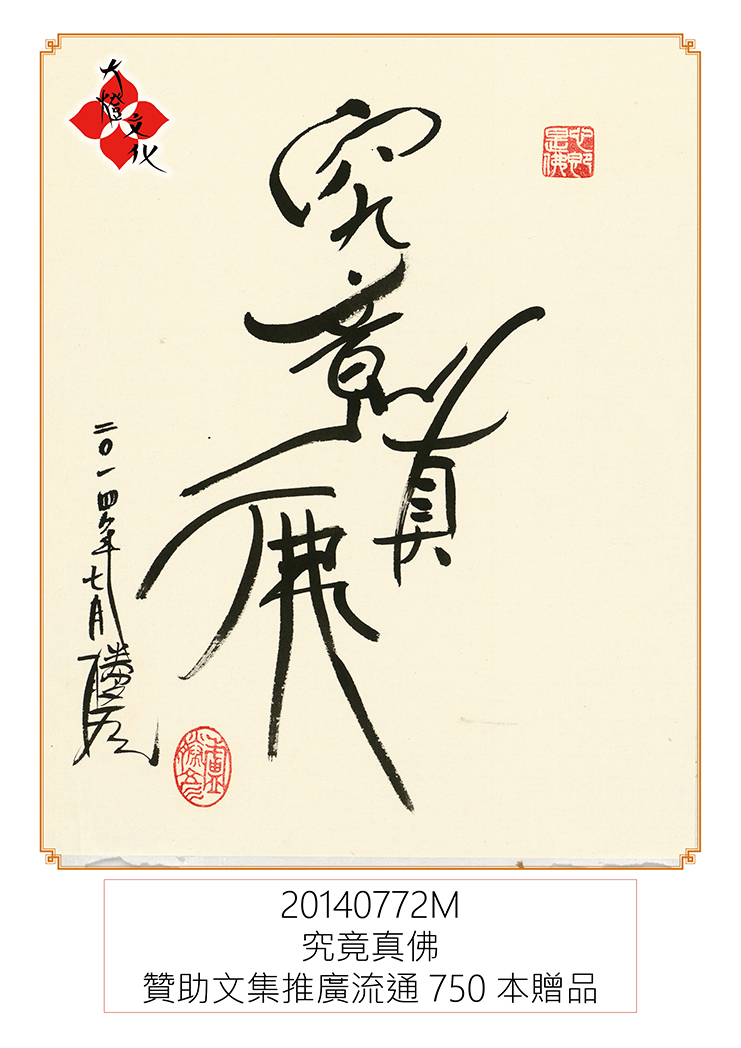 大燈文化
心即是佛
究竟真佛
二〇一四年七月
盧勝彥
20140772M
究竟真佛
贊助文集推廣流通 750 本贈品